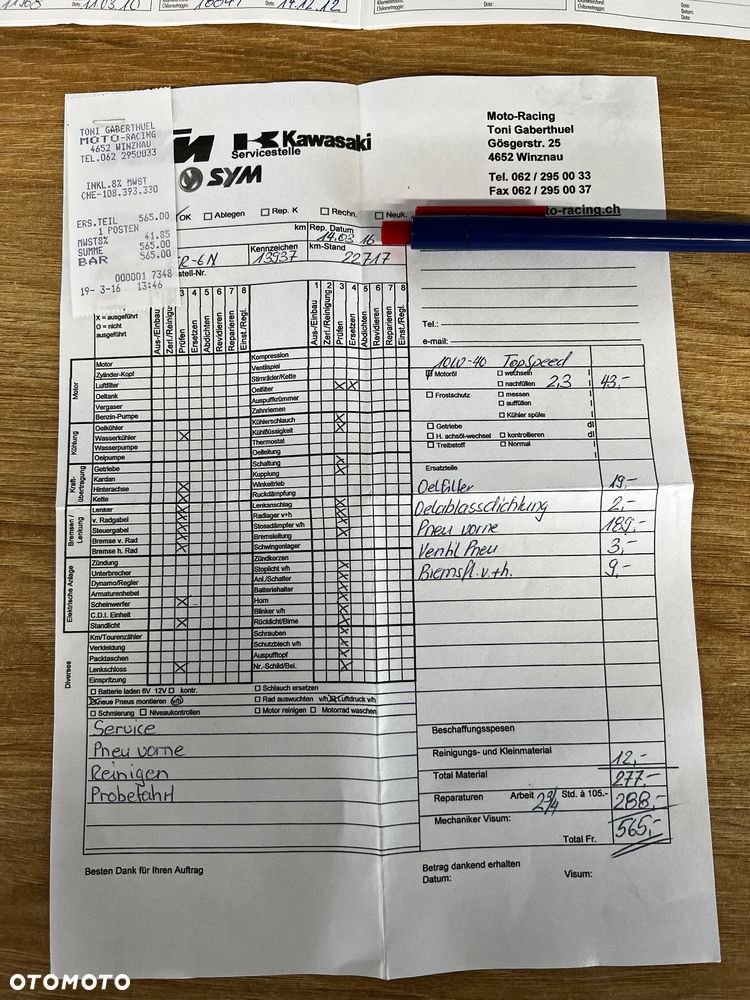 11368 Date: 11.03.10
Chilometraggio: 18041 Date: 14.12.12
TONI GABERTHUEL
MOTO-RACING
4652 WINZNAU
TEL.062 2950033
INKL.8% MWST
CHE-108.393.330
ERS.TEIL 565.00
1 POSTEN
MWST8% 41.85
SUMME 565.00
BAR 565.00
000001 7348
19- 3-16 13:46
Kawasaki
Servicestelle
SYM
Moto-Racing
Toni Gaberthuel
Gösgerstr. 25
4652 Winznau
Tel. 062 / 295 00 33
Fax 062 / 295 00 37
to-racing.ch
OK Ablegen Rep. K Rechn. Neuk.
km Rep. Datum
14.03.16
R-6N Kennzeichen 13937 km-Stand 22717
stell-Nr.
X = ausgeführt
O = nicht ausgeführt
3 4 5 6 7 8
Aus-/Einbau Zerl./Reinigung Prüfen Ersetzen Abdichten Revidieren Reparieren Einst./Regl.
1 2 3 4 5 6 7 8
Aus-/Einbau Zerl./Reinigung Prüfen Ersetzen Abdichten Revidieren Reparieren Einst./Regl.
Motor
Motor
Zylinder-Kopf
Luftfilter
Oeltank
Vergaser
Benzin-Pumpe
Kühlung
Oelkühler
Wasserkühler X
Wasserpumpe
Oelpumpe
Kraft-übertragung
Getriebe
Kardan
Hinterachse X
Kette X
Bremsen / Lenkung
Lenker X
v. Radgabel X
Steuergabel X
Bremse v. Rad X
Bremse h. Rad X
Elektrische Anlage
Zündung
Unterbrecher
Dynamo/Regler
Armaturenhebel
Scheinwerfer X
C.D.I. Einheit
Standlicht X
Diverses
Km/Tourenzähler
Verkleidung
Packtaschen
Lenkschloss X
Einspritzung
Kompression
Ventilspiel
Stirnräder/Kette
Oelfilter X X
Auspuffkrümmer
Zahnriemen
Kühlerschlauch X
Kühlflüssigkeit X
Thermostat
Oelleitung
Schaltung X
Kupplung X
Winkeltrieb
Ruckdämpfung
Lenkanschlag X
Radlager v+h X
Stossdämpfer v/h X
Bremsleitung X
Schwingenlager
Zündkerzen
Stoplicht v/h X
Anl./Schalter X
Batteriehalter X
Horn X
Blinker v/h X
Rücklicht/Birne X
Schrauben X
Schutzblech v/h X
Auspufftopf X
Nr.-Schild/Bel. X
Batterie laden 6V 12V kontr. Schlauch ersetzen
neue Pneus montieren v/h Rad auswuchten v/h Luftdruck v/h
Schmierung Niveaukontrollen Motor reinigen Motorrad waschen
Service
Pneu vorne
Reinigen
Probefahrt
Besten Dank für Ihren Auftrag
Tel.:
e-mail:
10W-40 TopSpeed
Motoröl wechseln
nachfüllen 2,3 43,-
Frostschutz messen
auffüllen
Kühler spüle
Getriebe dl
H. achsöl-wechsel kontrollieren dl
Treibstoff Normal l
Ersatzteile
Oelfilter 19,-
Oelablassdichtung 2,-
Pneu vorne 189,-
Ventil Pneu 3,-
Bremsfl. v.+h. 9,-
Beschaffungsspesen
Reinigungs- und Kleinmaterial 12,-
Total Material 277,-
Reparaturen Arbeit 2 3/4 Std. à 105.- 288,-
Mechaniker Visum: 565,-
Total Fr.
Betrag dankend erhalten
Datum: Visum:
OTOMOTO